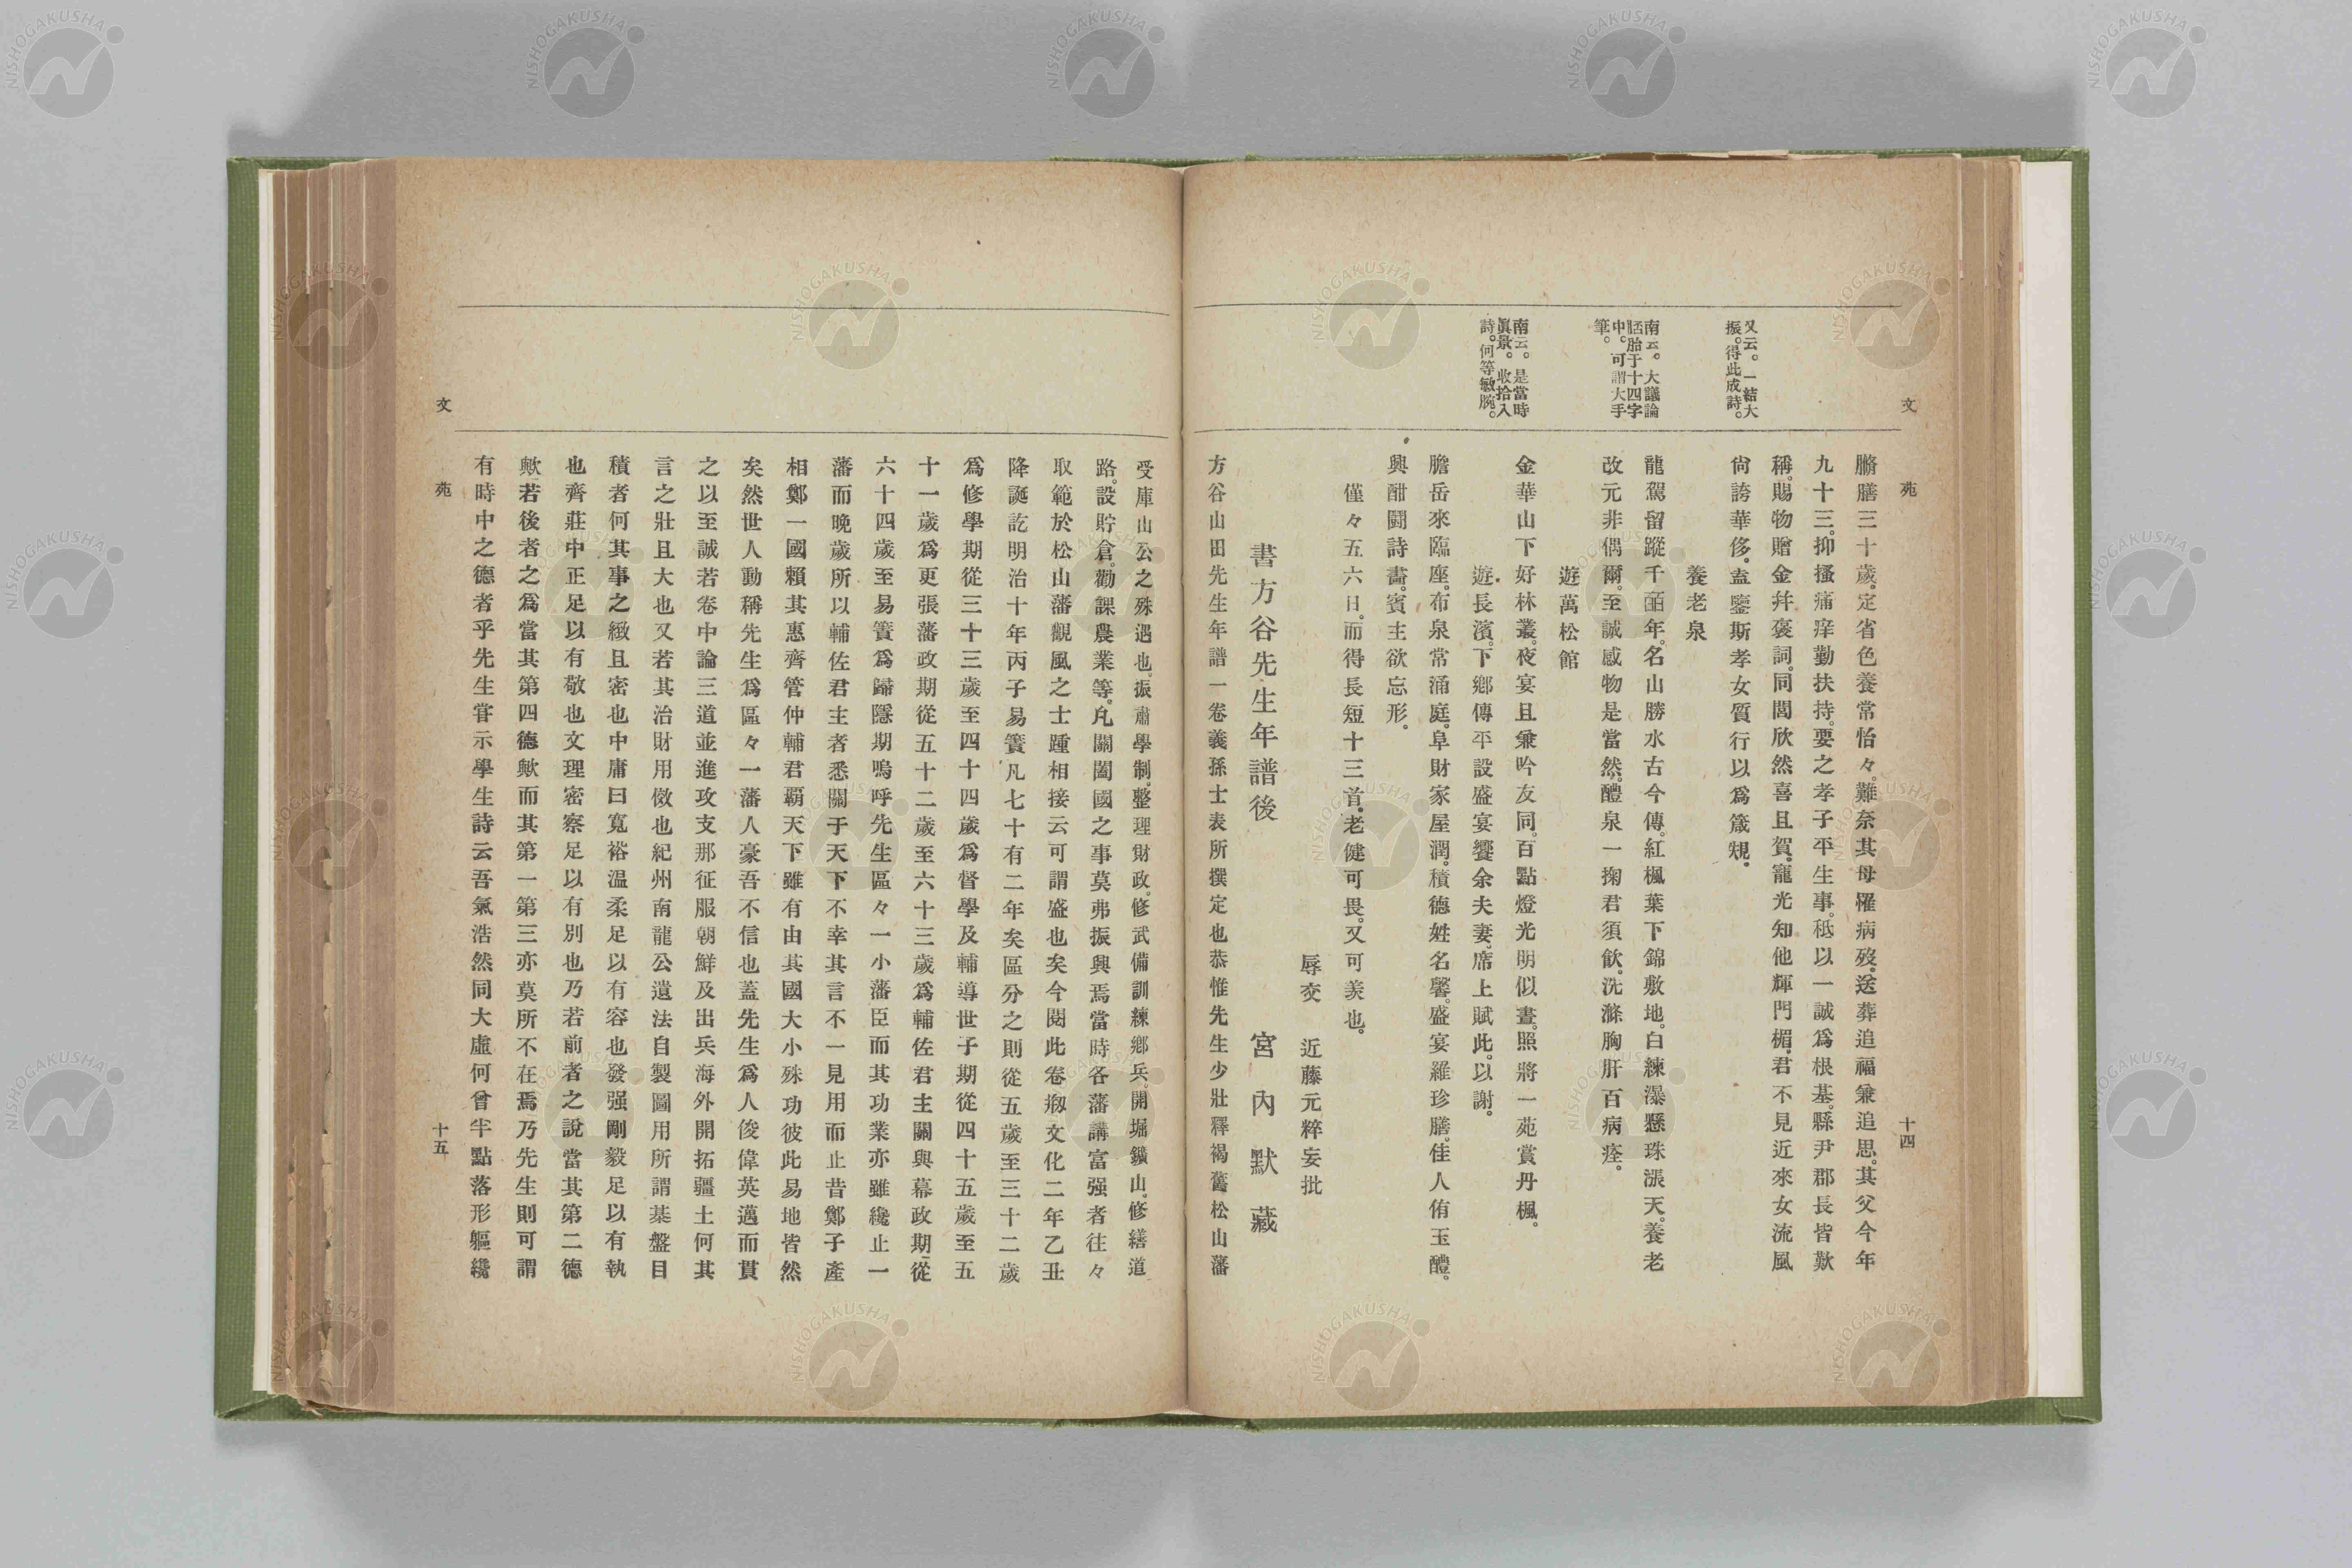 文苑
十四
又云。一結大
振。得此成詩。
南云。大議論
胚胎于十四字
中。可謂大手
筆。
南云。是當時
眞景。收拾入
詩。何等敏腕。
膳三十歲。定省色養常怡々。難奈其母罹病歿。送葬追福兼追思。其父今年
九十三。抑搔痛痒勤扶持。要之孝子平生事。秪以一誠爲根基。縣尹郡長皆歎
稱。賜物贈金幷褒詞。同閭欣然喜且賀。寵光知他輝門楣。君不見近來女流風
尙誇華侈。盍鑒斯孝女質行以爲箴規。
養老泉
龍駕留蹤千百年。名山勝水古今傳。紅楓葉下錦敷地。白練瀑懸珠漲天。養老
改元非偶爾。至誠感物是當然。醴泉一掬君須飮。洗滌胸肝百病痊。
遊萬松館
金華山下好林叢。夜宴且兼吟友同。百點燈光明似晝。照將一苑賞丹楓。
遊長濱。下鄕傳平設盛宴饗余夫妻。席上賦此。以謝。
膽岳來臨座。布泉常涌庭。阜財家屋潤。積德姓名馨。盛宴羅珍膳。佳人侑玉醴。
興酣鬪詩畵。賓主欲忘形。
僅々五六日。而得長短十三首。老健可畏。又可羨也。
辱交 近藤元粹妄批
書方谷先生年譜後 宮內默藏
方谷山田先生年譜一卷義孫士表所撰定也恭惟先生少壯釋褐舊松山藩
受庫山公之殊遇也。振肅學制。整理財政。修武備訓練鄕兵。開堀鑛山。修繕道
路。設貯倉。勸課農業等。凡關闔國之事莫弗振興焉當時各藩講富强者往々
取範於松山藩觀風之士踵相接云可謂盛也矣今閱此卷剏文化二年乙丑
降誕訖明治十年丙子易簀凡七十有二年矣區分之則從五歲至三十二歲
爲修學期從三十三歲至四十四歲爲督學及輔導世子期從四十五歲至五
十一歲爲更張藩政期從五十二歲至六十三歲爲輔佐君主關與幕政期從
六十四歲至易簀爲歸隱期嗚呼先生區々一小藩臣而其功業亦雖纔止一
藩而晚歲所以輔佐君主者悉關于天下不幸其言不一見用而止昔鄭子產
相鄭一國賴其惠齊管仲輔君覇天下雖有由其國大小殊功彼此易地皆然
矣然世人動稱先生爲區々一藩人豪吾不信也蓋先生爲人俊偉英邁而貫
之以至誠若卷中論三道並進攻支那征服朝鮮及出兵海外開拓疆土何其
言之壯且大也又若其治財用儆也紀州南龍公遺法自製圖用所謂棊盤目
積者何其事之緻且密也中庸曰寬裕温柔足以有容也發强剛毅足以有執
也齊莊中正足以有敬也文理密察足以有別也乃若前者之說當其第二德
歟若後者之爲當其第四德歟而其第一第三亦莫所不在焉乃先生則可謂
有時中之德者乎先生甞示學生詩云吾氣浩然同大虛何曾半點落形軀纔
文苑
十五